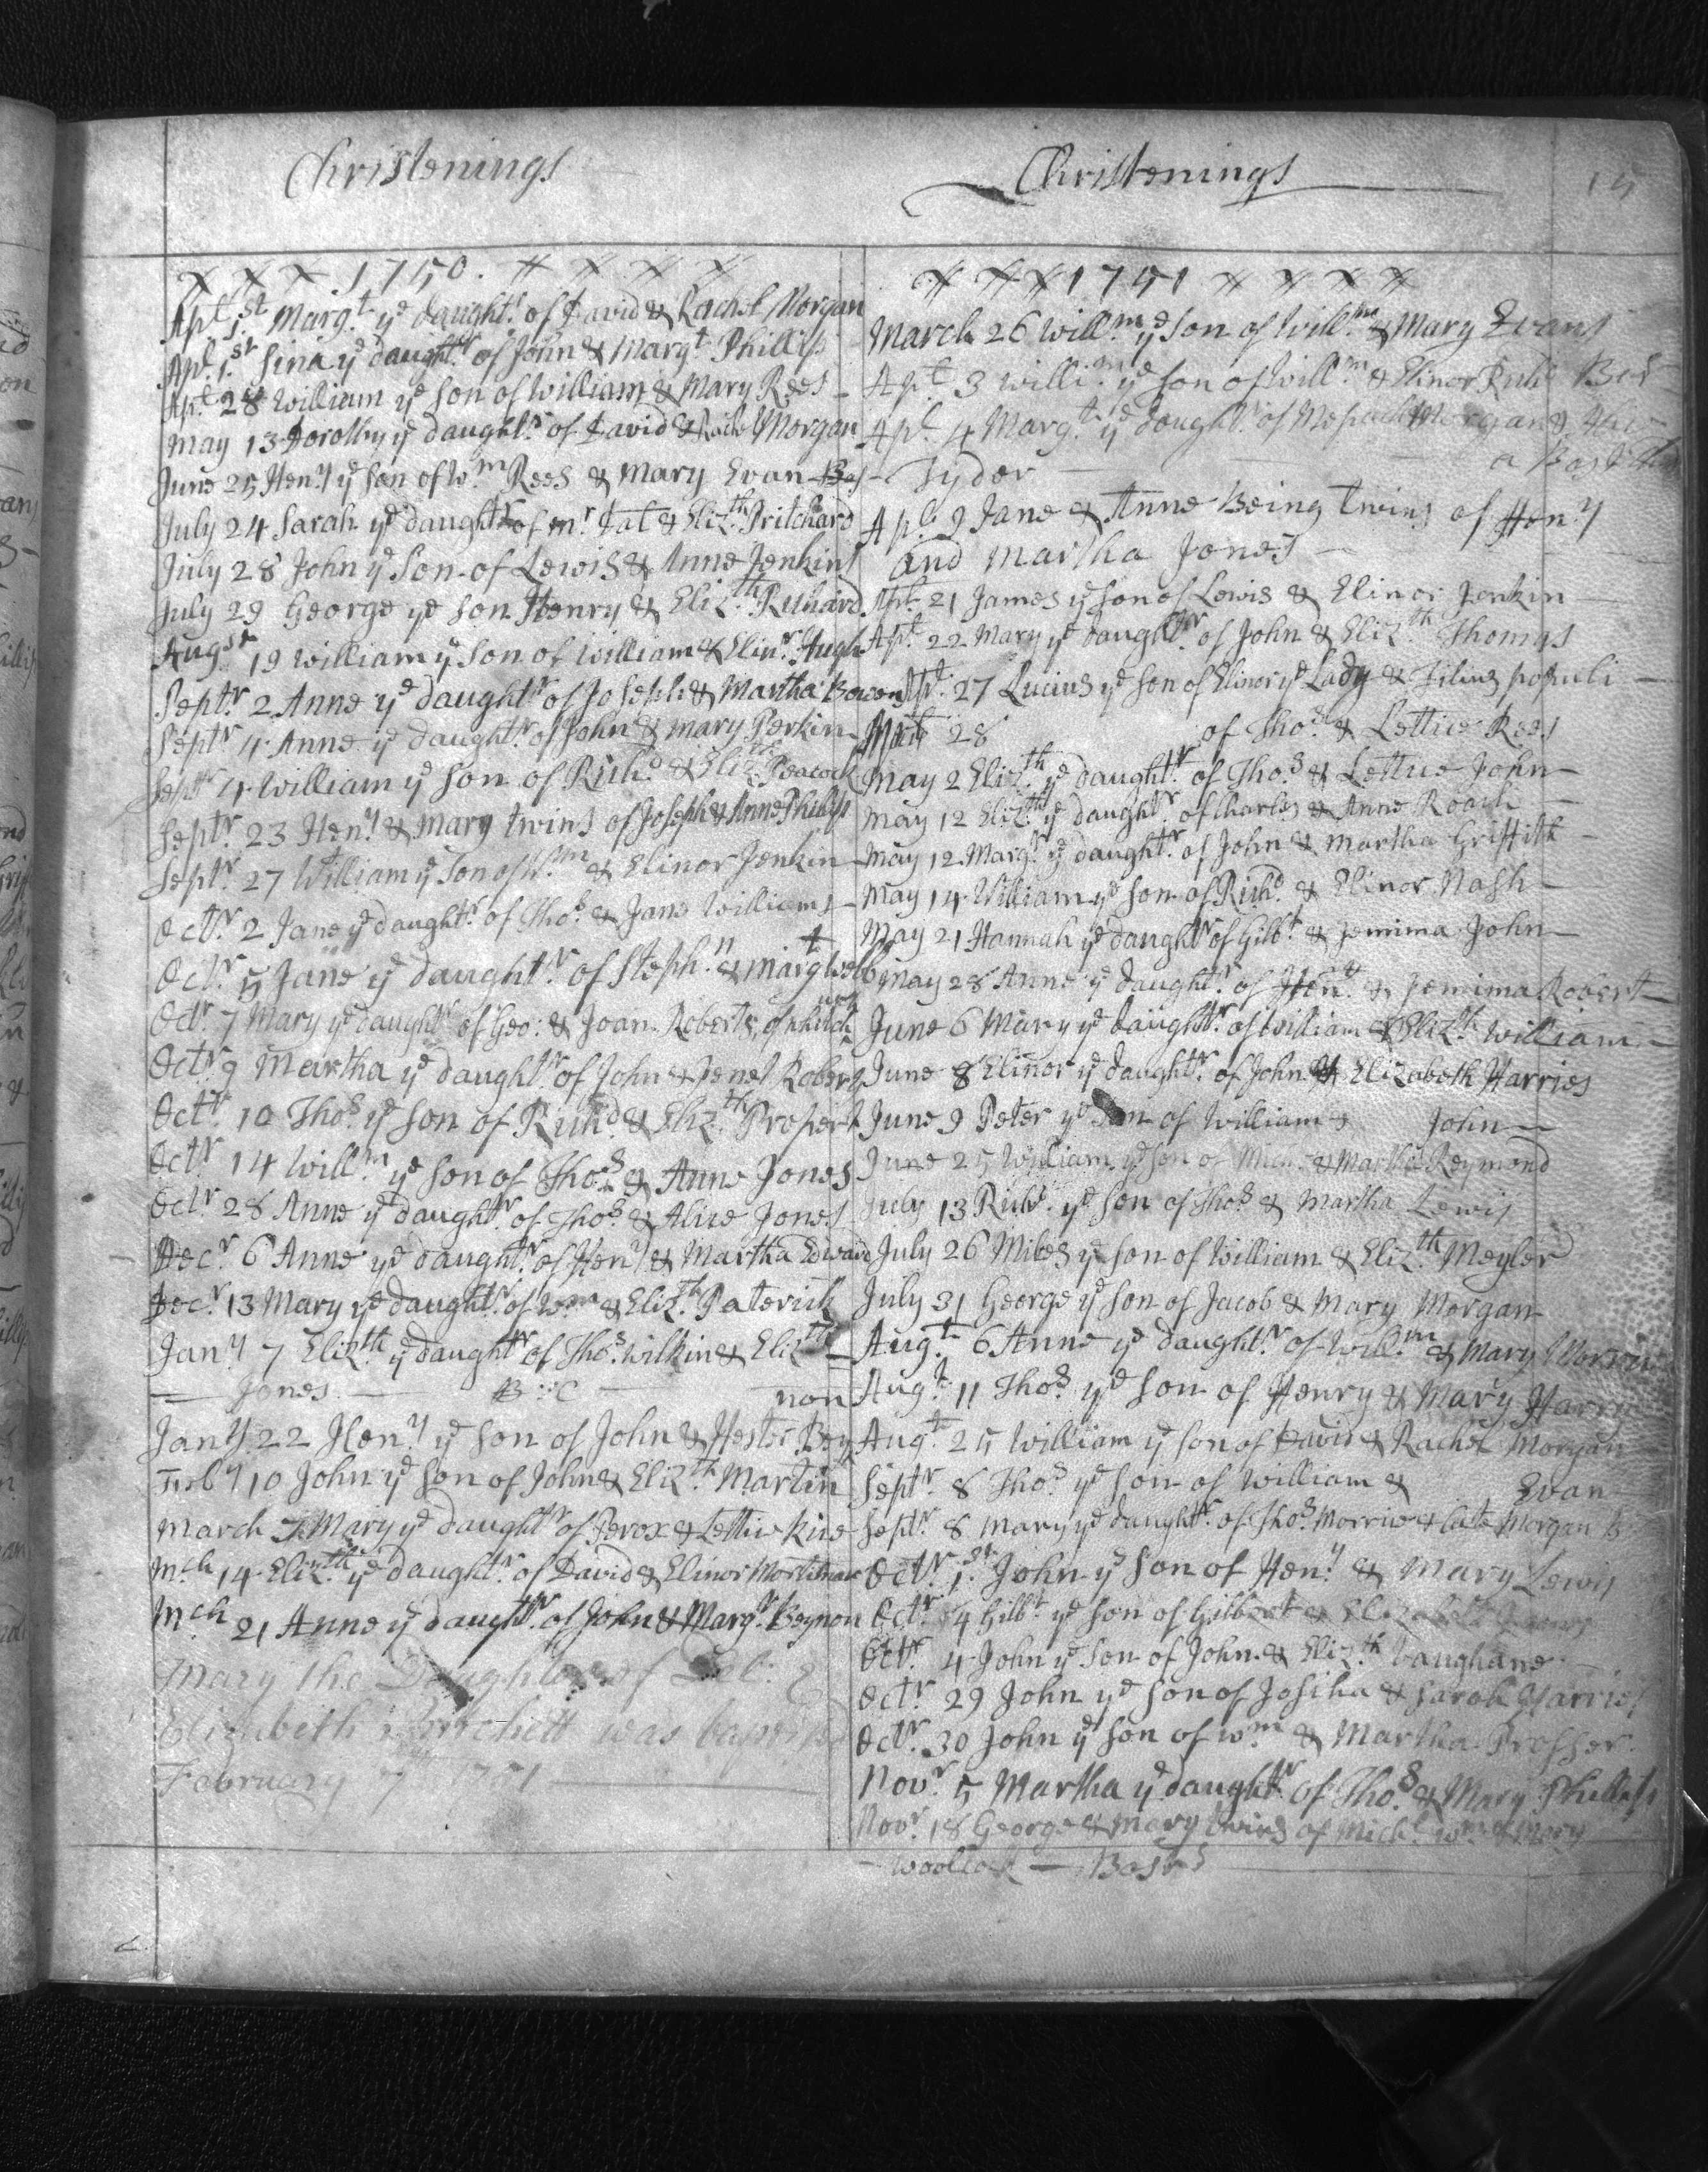 Christenings
x x x 1750. x x x x
Apl. 1.st Marg.t ye daught.r of David & Rachel Morgan
Apl. 1.st Sina ye daught.r of John & Marg.t Phillips
Apl. 28 William ye Son of William & Mary Rees
May 13 Dorothy ye daught.r of David & Rachel Morgan
June 25 Hen.y ye Son of W.m Rees & Mary Evan Bas
July 24 Sarah ye daught.r of mr. & Eliz.th Pritchard
July 28 John ye Son of Lewis & Anne Jenkins
July 29 George ye Son Henry & Eliz.th Richard
Aug.st 19 William ye Son of William & Elin.r Hugh
Sept.r 2 Anne ye daught.r of Joseph & Martha Bowen
Sept.r 4 Anne ye daught.r of John & Mary Perkin
Sept.r 4 William ye Son of Rich.d & Eliz.th Peacock
Sept.r 23 Hen.y & Mary twins of Joseph & Anne Philips
Sept.r 27 William ye Son of W.m & Elinor Jenkin
Oct.r 2 Jane ye daught.r of Tho.s & Jane Williams
Oct.r 5 Jane ye daught.r of Steph.n & marg.t Webb
Oct.r 7 Mary ye daught.r of Geo: & Joan Roberts
Oct.r 9 Martha ye daught.r of John & Jenet Roberts
Oct.r 10 Tho.s ye Son of Rich.d & Eliz.th Propert
Oct.r 14 Will.m ye Son of Tho.s & Anne Jones
Oct.r 28 Anne ye daught.r of Tho.s & Alice Jones
Dec.r 6 Anne ye daught.r of Hen.y & Martha Edward
Dec.r 13 Mary ye daught.r of W.m & Eliz.th Paterick
Jan.y 7 Eliz.th ye daught.r of Tho.s Wilkin & Eliz.th
Jones
Jan.y 22 Hen.y ye Son of John & Hester Bey
non
Feb.y 10 John ye Son of John & Eliz.th Martin
March 7 Mary ye daught.r of Perox & Lettice Rice
Mch 14 Eliz.th ye daught.r of David & Elinor Mortimer
Mch 21 Anne ye daught.r of John & Marg.t Beynon
Mary the Daughter of &
Elizabeth Pritchett was baptized
February 7th 1751
Christenings 15
x x x 1751 x x x x
March 26 Will.m ye Son of Will.m & Mary Evans
Apl. 3 Willi.m ye Son of Will.m & Elinor
Apl. 4 Marg.t ye Daught.r of Morgan &
Tyder a Bast
Apl. 9 Jane & Anne Being twins of Hen.y
and Martha Jones
Apl. 21 James ye Son of Lewis & Elinor Jenkin
Apl. 22 Mary ye daught.r of John & Eliz.th Thomas
Apl. 27 Lucius ye Son of Elinor ye Lady & Filius populi
28 of Tho.s & Lettice Rees
May 2 Eliz.th ye daught.r of Tho.s & Lettice John
May 12 Eliz.th ye daught.r of Charles & Anne Roach
May 12 Marg.t ye daught.r of John & Martha Griffith
May 14 William ye Son of Rich.d & Elinor Nash
May 21 Hannah ye daught.r of Gilb.t & Jemima John
May 28 Anne ye daught.r of & Jemima Robert
June 6 Mary ye daught.r of William & Eliz.th William
June 8 Elinor ye daught.r of John & Elizabeth Harries
June 9 Peter ye Son of William & John
June 25 William ye Son of & Martha Reymond
July 13 Rich.d ye Son of Tho.s & Martha Lewis
July 26 Miles ye Son of William & Eliz.th Meyler
July 31 George ye Son of Jacob & Mary Morgan
Aug.t 6 Anne ye daught.r of Will.m & Mary
Aug.t 11 Tho.s ye Son of Henry & Mary Harry
Aug.t 25 William ye Son of David & Rachel Morgan
Sept.r 8 Tho.s ye Son of William & Evan
Sept.r 8 Mary ye daught.r of Tho.s Morris & Cate Morgan B
Oct.r 1.st John ye Son of Hen.y & Mary Lewis
Oct.r 4 Gilb.t ye Son of Gilbert & Elizabeth
Oct.r 4 John ye Son of John & Eliz.th Vaughane
Oct.r 29 John ye Son of Josiha & Sarah Harries
Oct.r 30 John ye Son of W.m & Martha Prosser
Nov.r 5 Martha ye daught.r of Tho.s & Mary Phillips
Nov.r 18 George & Mary twins of & Mary
Woolcok Bast.s